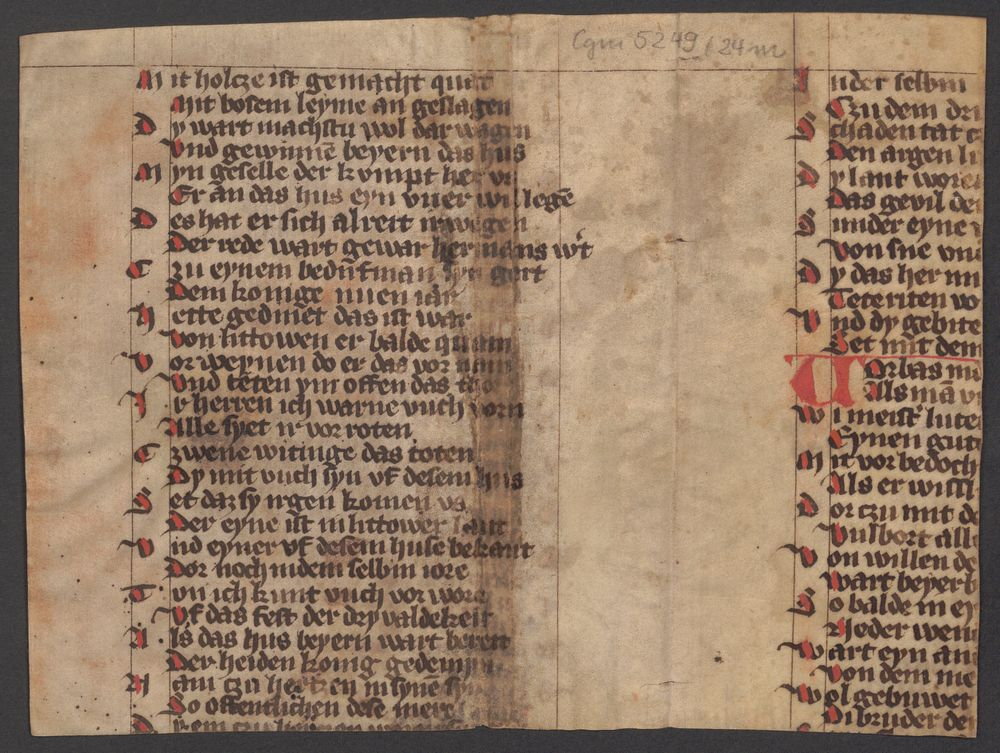 Cgm 5249/24m
Mit holcze ist gemacht quat
Mit bosem leyme an geslagen
Dy wart machstu wol dar wagen
Vnd gewinnē beyern das hus
Myn geselle der kvmpt her vs
Er an das hus eyn vuer wil legē
Des hat er sich al reit irwegen
Der rede wart gewar hermans wʼt
Czu eynem bedūtman syn gert
Dem konige nuen iar
Hette gedinet das ist war
Von littowen er balde quam
Vor weynen do er das vor nam
Vnd tēten ym offen das thor
Ir herren ich warne vuch vorn
Alle syet ir vor roten
Czwene witinge das toten
Dy mit vuch syn vf desem hus
Set daz sy irgen komen vs
Der eyne ist in littower lant
Vnd eyner vf desem huse bekant
Dor noch in dem selbin iore
Tvn ich kunt vuch vor wore
Vf das fest der dryvaldekeit
Als das hus beyern wart bereit
Der heiden konig gedemyn
Nam czu hertzen in syne
So offentlichen dese mere
In der selbin
Czu dem dri
Schaden tat
Den argen li
Dy lant wore
Das gevil de
Sunder eyne
Von sne vn
Dy das her
Tete riten vo
Vnd dy gebite
Set mit dem
Vorbas
Als mā
Wi meistʼ lute
Eynen gut
Mit vor bedoch
Als er wissi
Vor czu mit de
Vulbort all
Von willen de
Wart beyer
So balde in ey
Rjeder wen
Wart eyn an
Von dem me
Wol gebuwet
Di bruder de